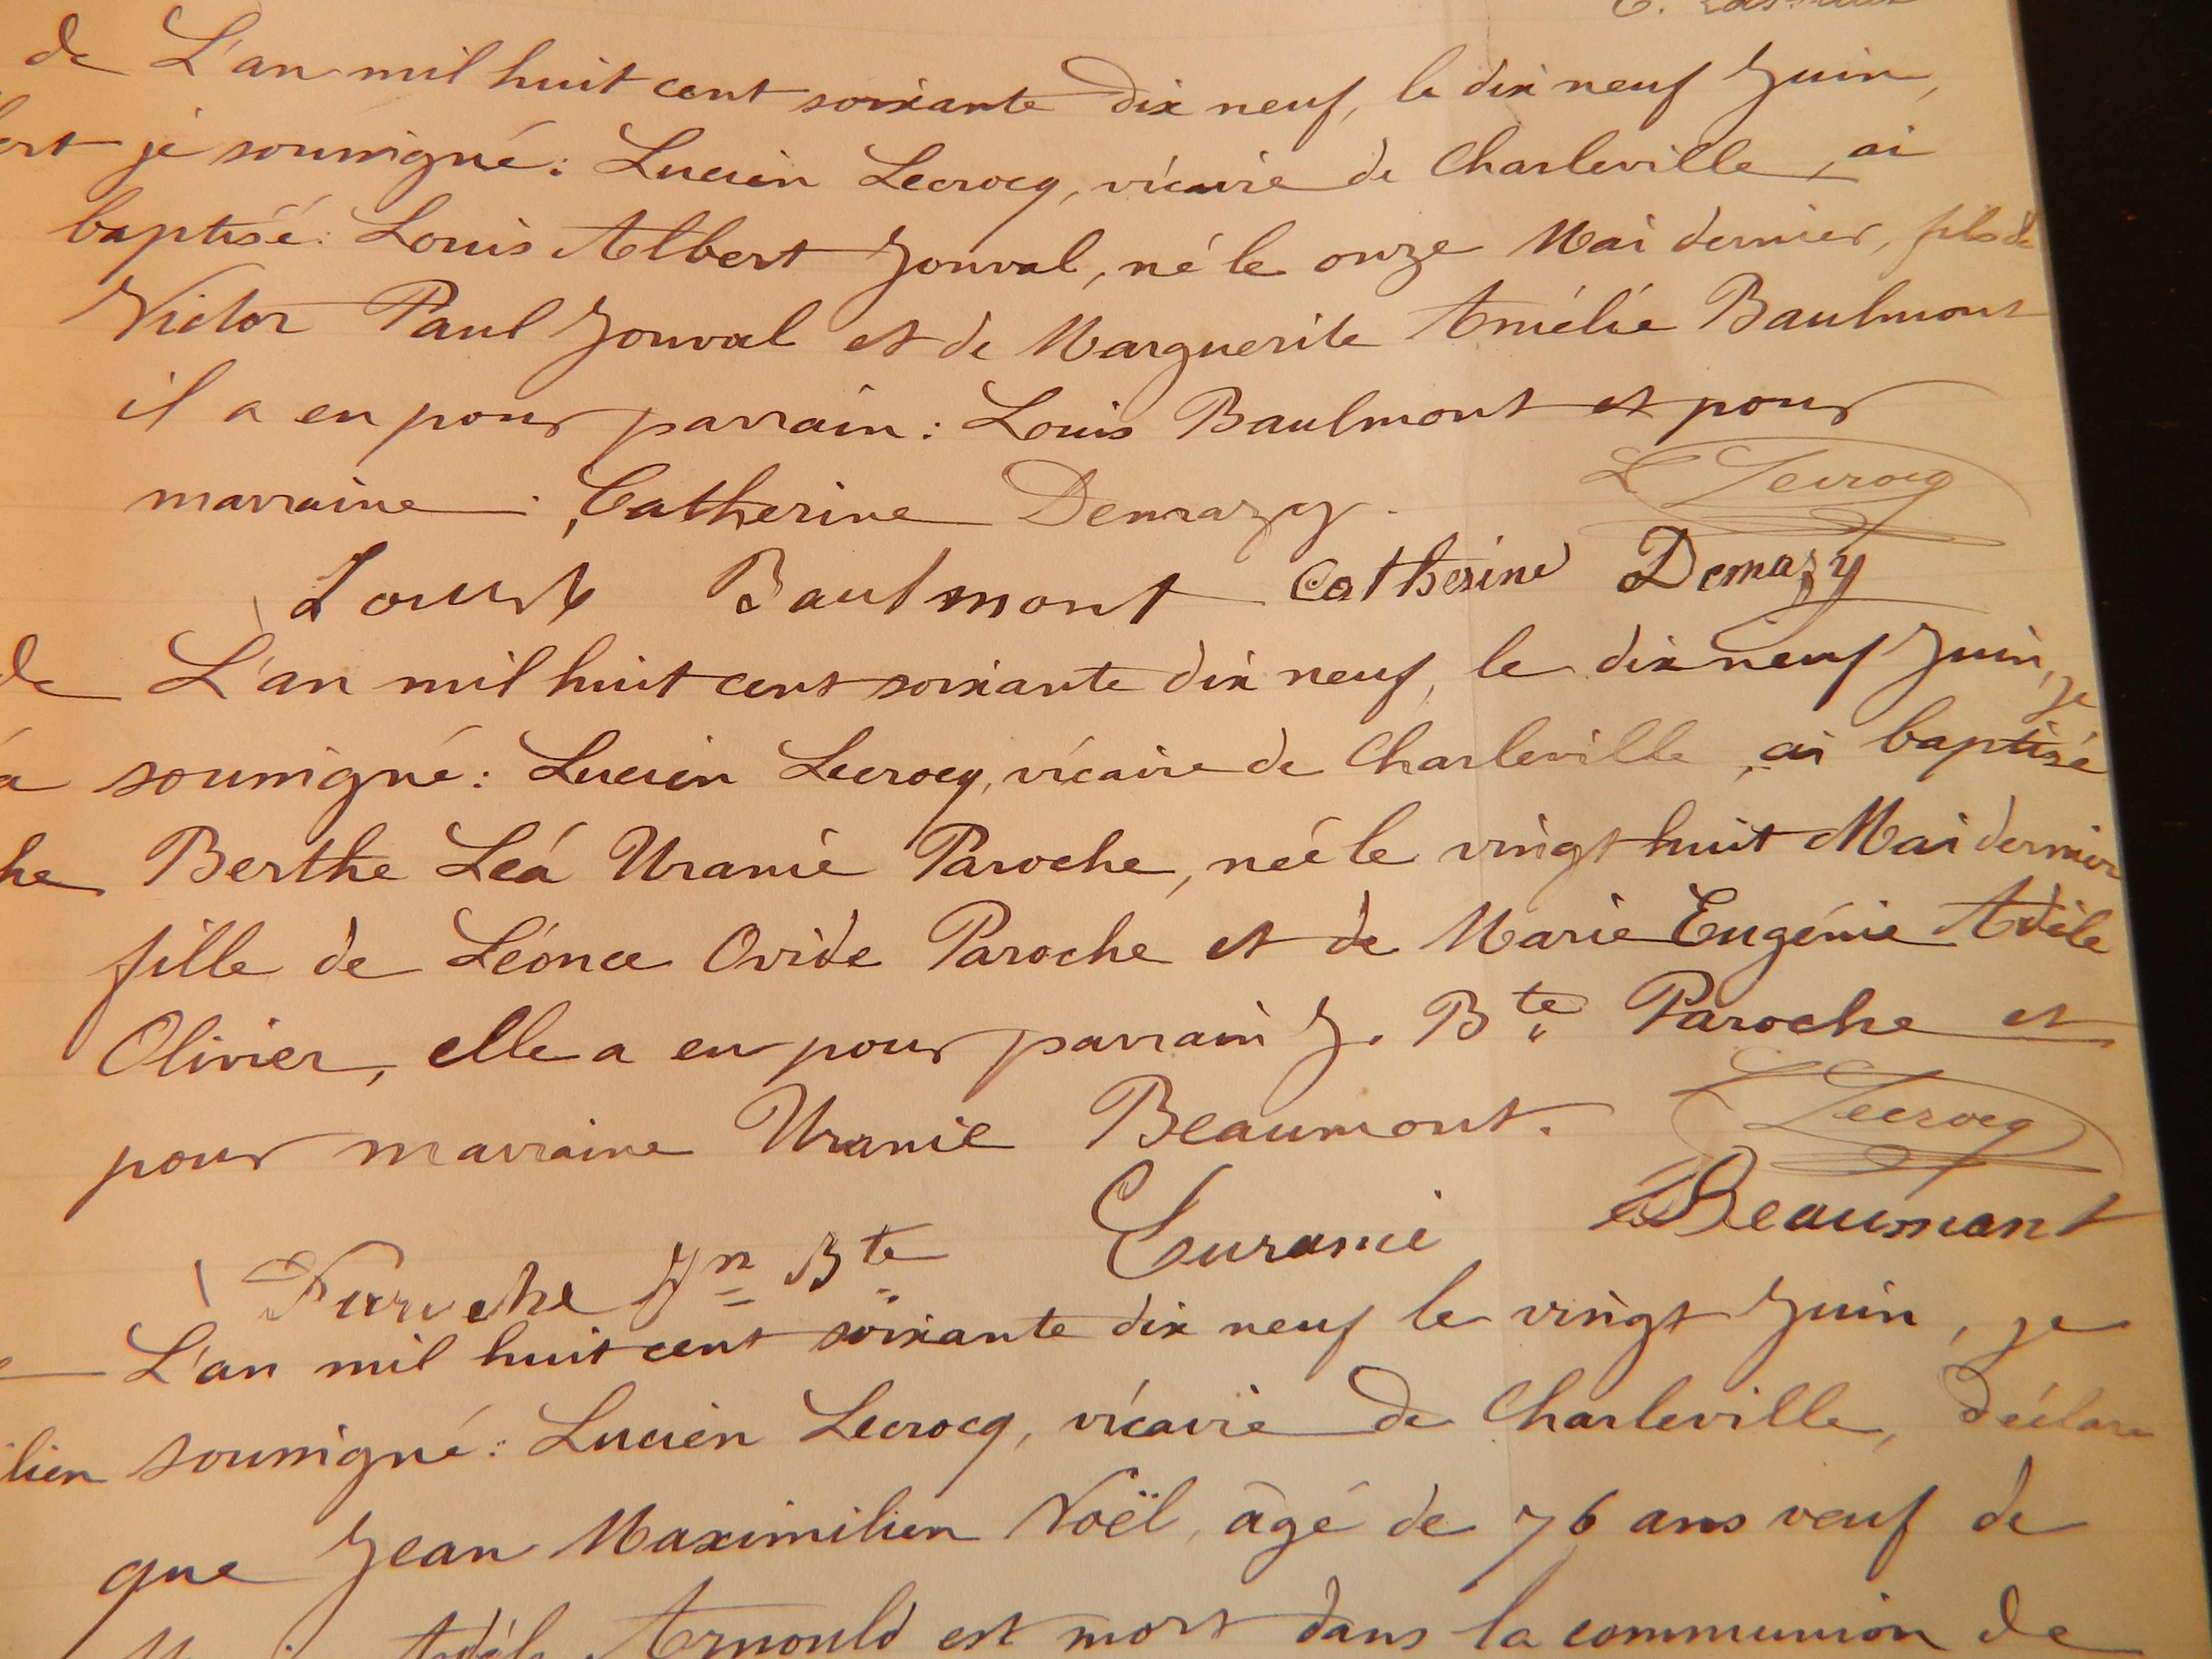 de L'an mil huit cent soixante dix neuf, le dix neuf Juin,
je soussigné: Lucien Lecrocq, vicaire de Charleville, ai
baptisé: Louis Albert Jonval, né le onze Mai dernier, fils de
Victor Paul Jonval et de Marguerite Amélie Baulmont
il a eu pour parrain: Louis Baulmont et pour
marraine: Catherine Demazy.
L Lecrocq
Louis Baulmont Catherine Demazy
de L'an mil huit cent soixante dix neuf, le dix neuf Juin, je
soussigné: Lucien Lecrocq, vicaire de Charleville, ai baptisé
he Berthe Léa Uranie Paroche, née le vingt huit Mai dernier
fille de Léonce Ovide Paroche et de Marie Eugénie Adèle
Olivier, elle a eu pour parrain J. Bte Paroche et
pour marraine Uranie Beaumont.
L Lecrocq
Paroche Jn Bte Beaumont
L'an mil huit cent soixante dix neuf le vingt Juin, je
lien soussigné: Lucien Lecrocq, vicaire de Charleville, déclare
que Jean Maximilien Noël, âgé de 76 ans veuf de
Adèle Arnould est mort dans la communion de